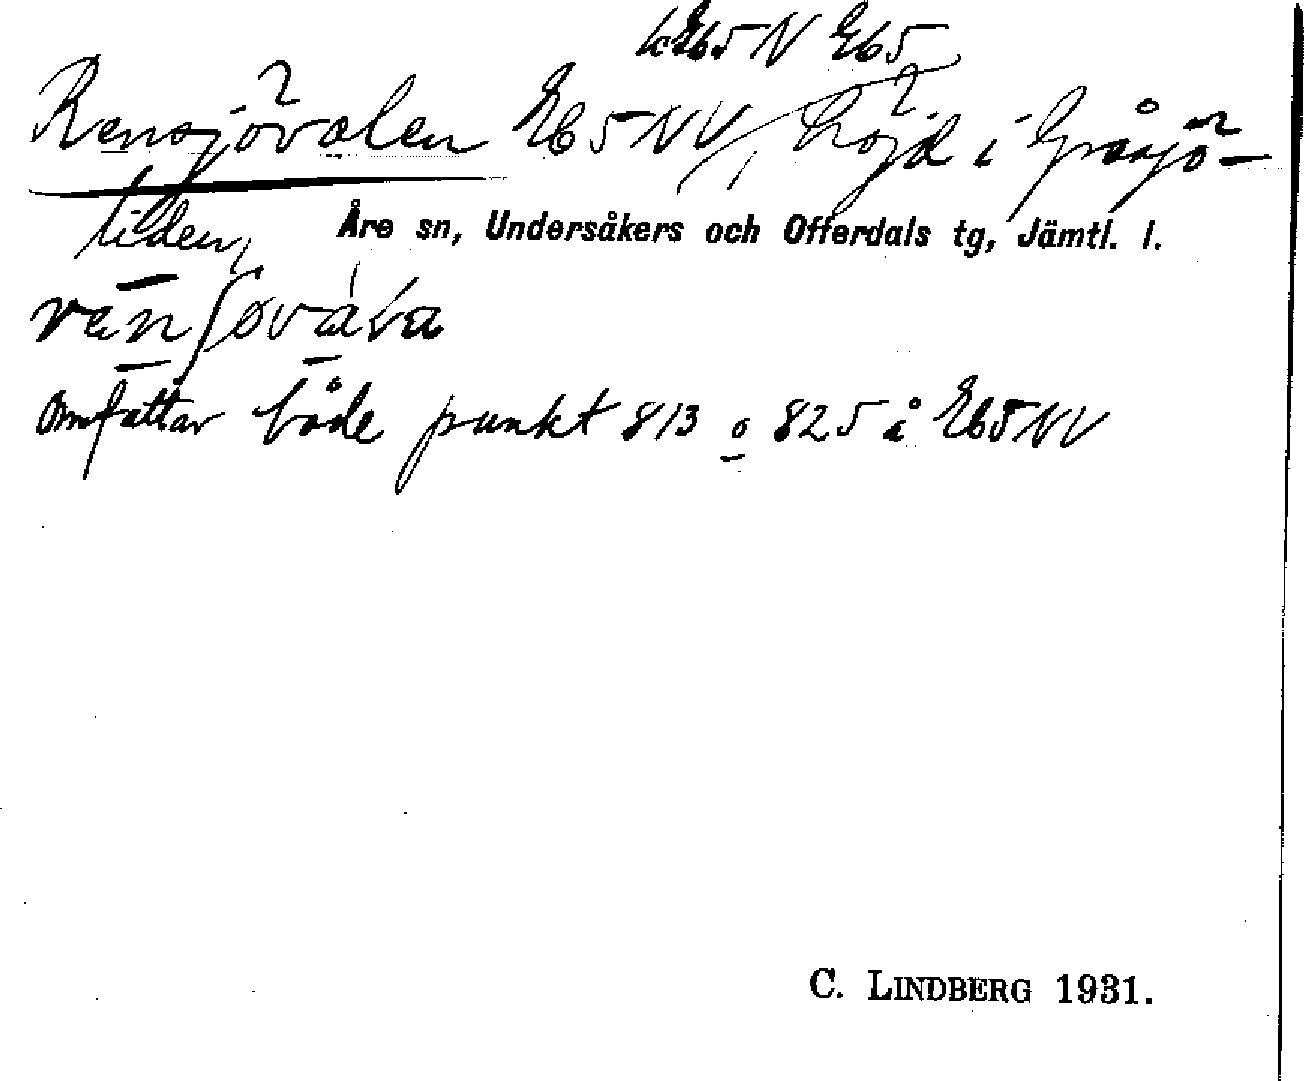 Eb5N Eb5
Rensjövalen Eb5NV, höjd i Gråsjö-
liden,
Åre sn, Undersåkers och Offerdals tg, Jämtl. l.
Omfattar både punkt 813 o 825 å Eb5NV
C. LINDBERG 1931.